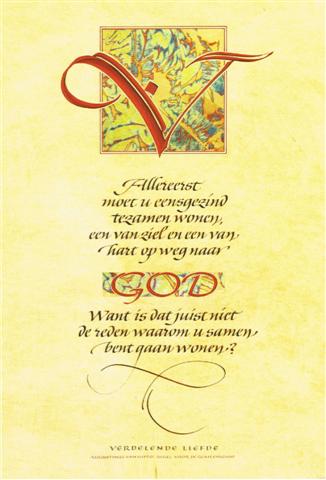 V
Allereerst
moet u eensgezind
tezamen wonen,
een van ziel en een van
hart op weg naar
GOD
Want is dat juist niet
de reden waarom u samen
bent gaan wonen?
VERDELENDE LIEFDE
AUGUSTINUS VAN HIPPO, REGEL VOOR DE GEMEENSCHAP